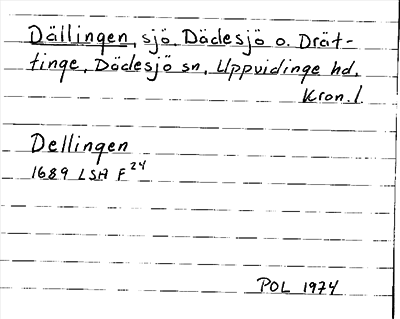 Dällingen, sjö. Dädesjö o. Drät-
tinge, Dädesjö sn, Uppvidinge hd,
Kron. l.
Dellingen
1689 LSA F 24
POL 1974